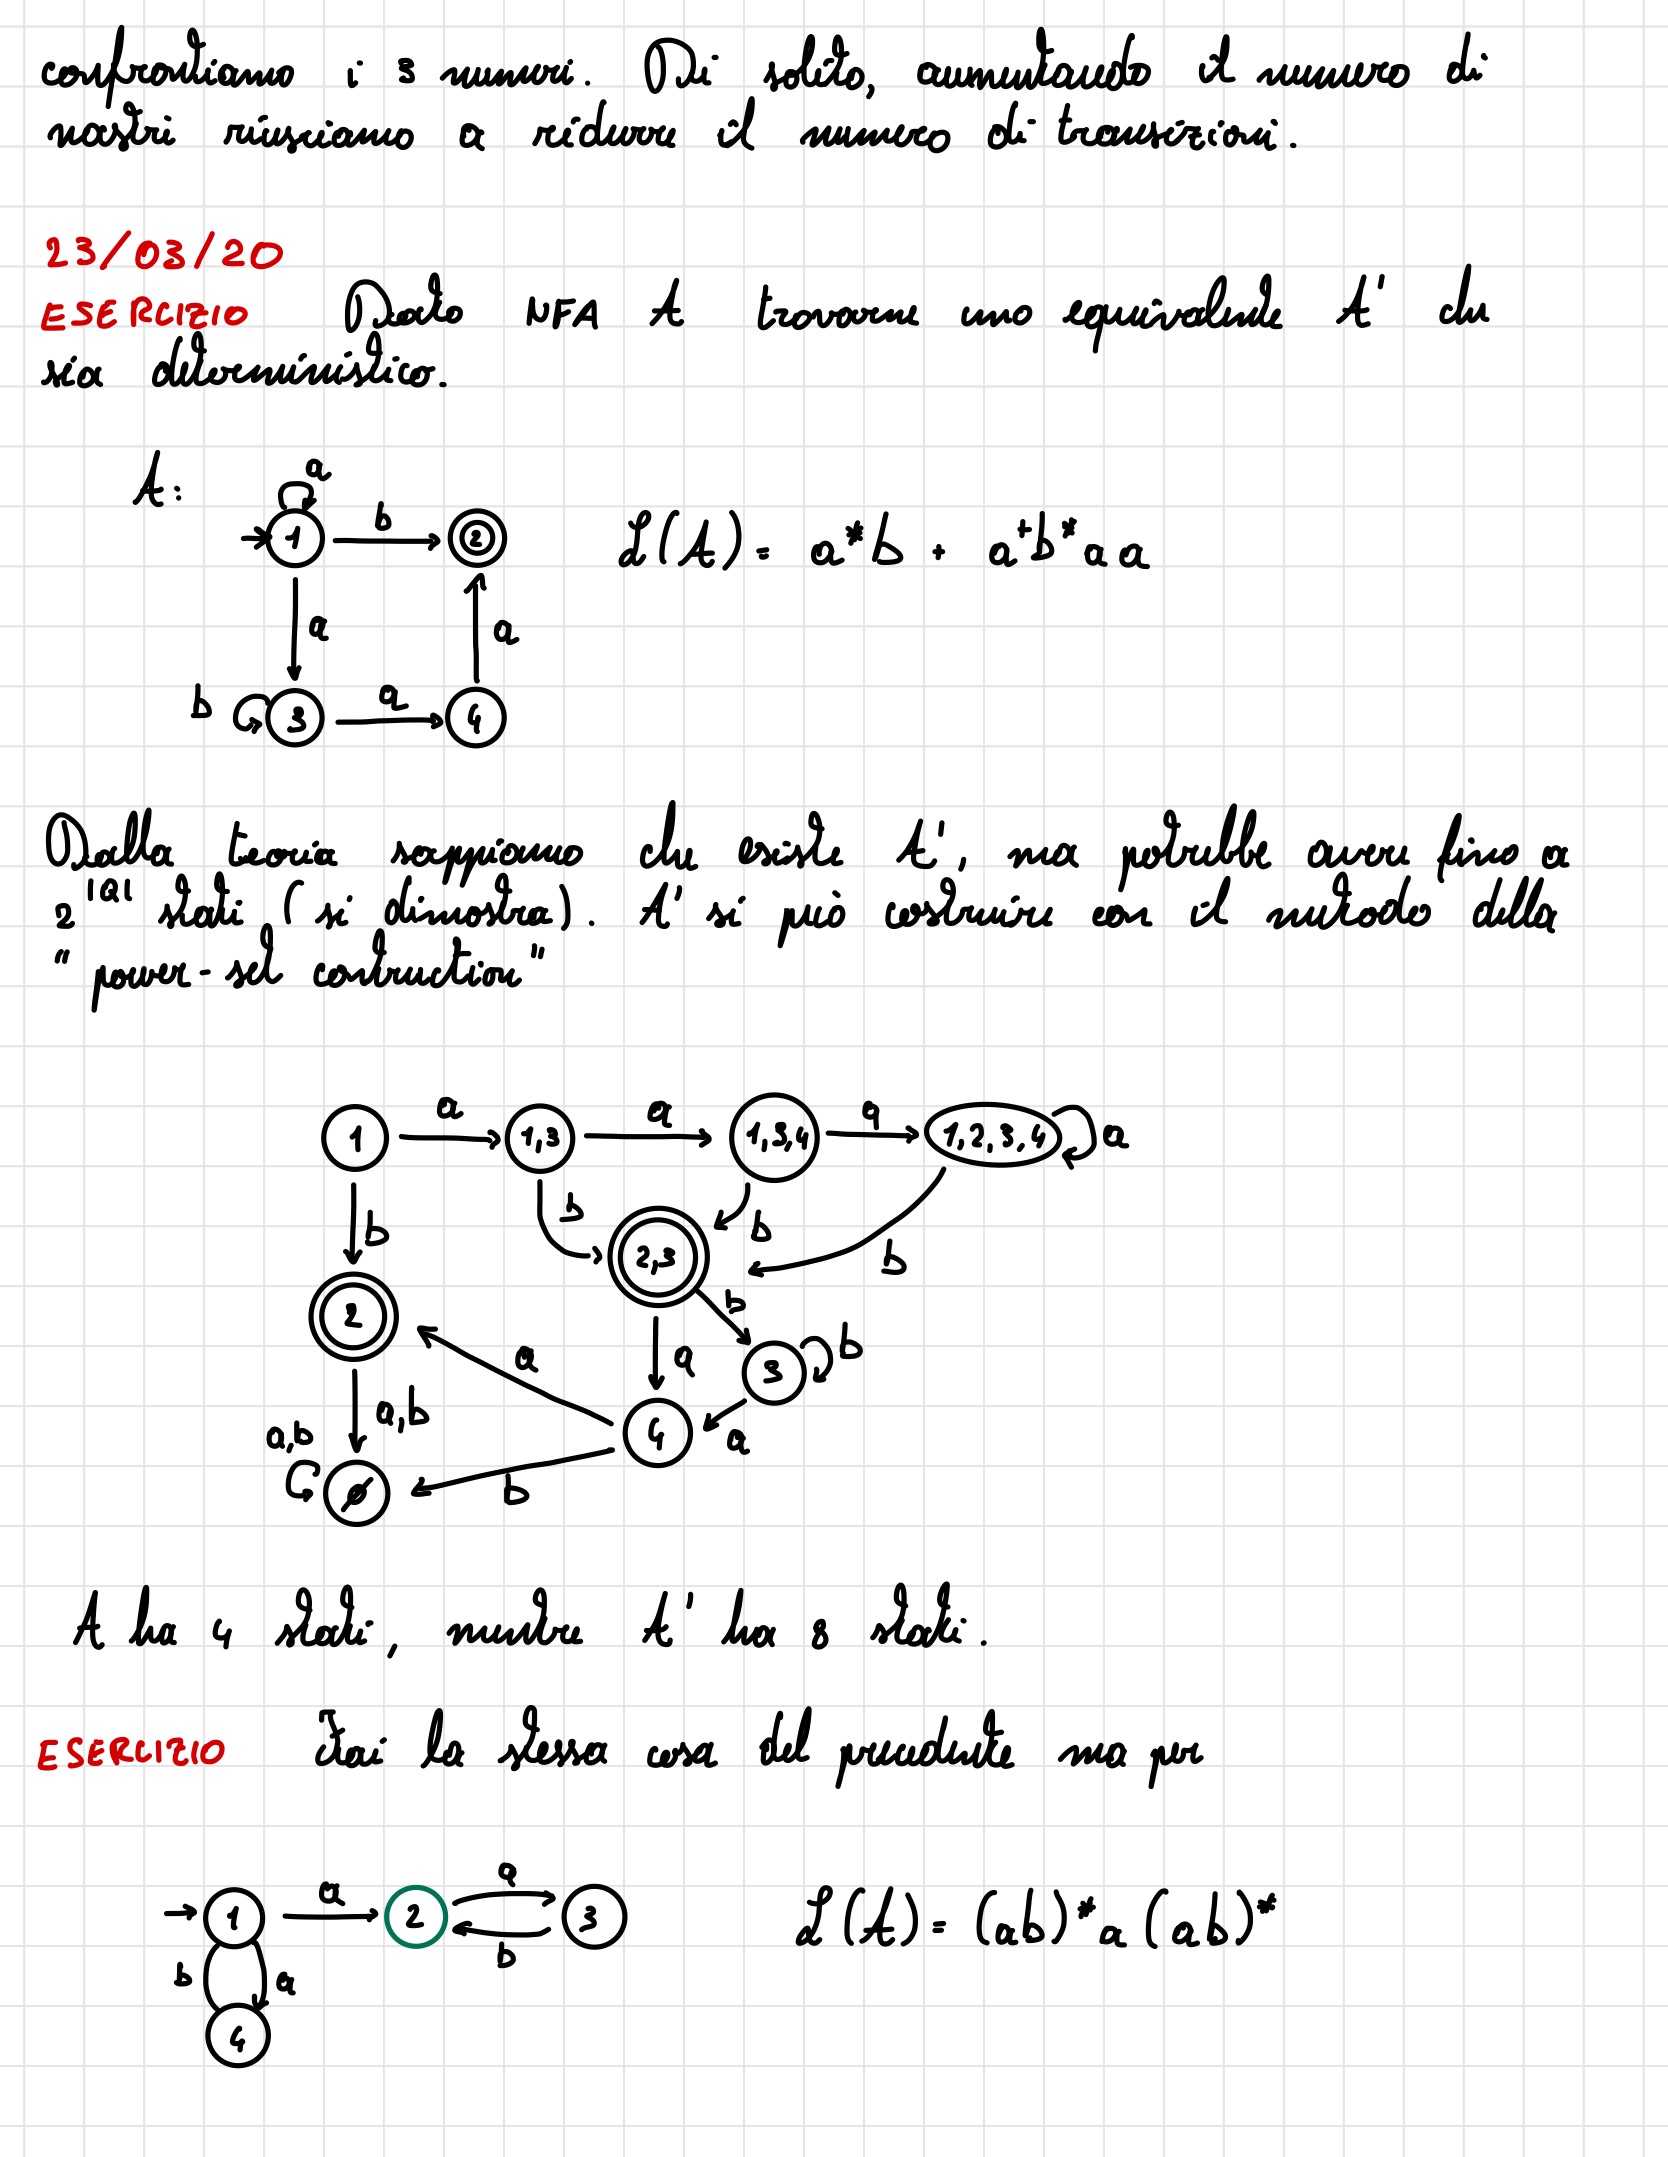 confrontiamo i 3 numeri. Di solito, aumentando il numero di
nastri riusciamo a ridurre il numero di transizioni.
23/03/20
ESERCIZIO Dato NFA A trovarne uno equivalente A' che
sia deterministico.
A:
a
1 b 2 L(A) = a*b + a⁺b*aa
a a
b 3 a 4
Dalla teoria sappiamo che esiste A', ma potrebbe avere fino a
2^|Q| stati (si dimostra). A' si può costruire con il metodo della
"power-set contruction"
1 a 1,3 a 1,3,4 a 1,2,3,4 a
b b b b
2,3
2 b
a a 3 b
a,b a,b 4 a
∅ b
A ha 4 stati, mentre A' ha 8 stati.
ESERCIZIO Fai la stessa cosa del precedente ma per
1 a 2 a 3 L(A) = (ab)*a(ab)*
b
b a
4